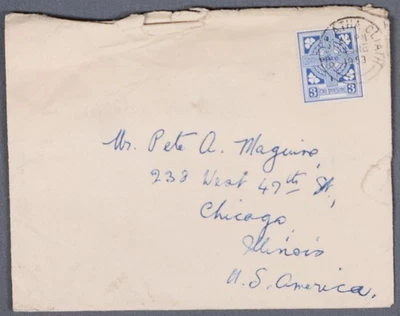 ÁTHA CLIATH
3 3
Mr. Pete A. Maguire,
238 West 47th St,
Chicago,
Illinois
U.S. America.